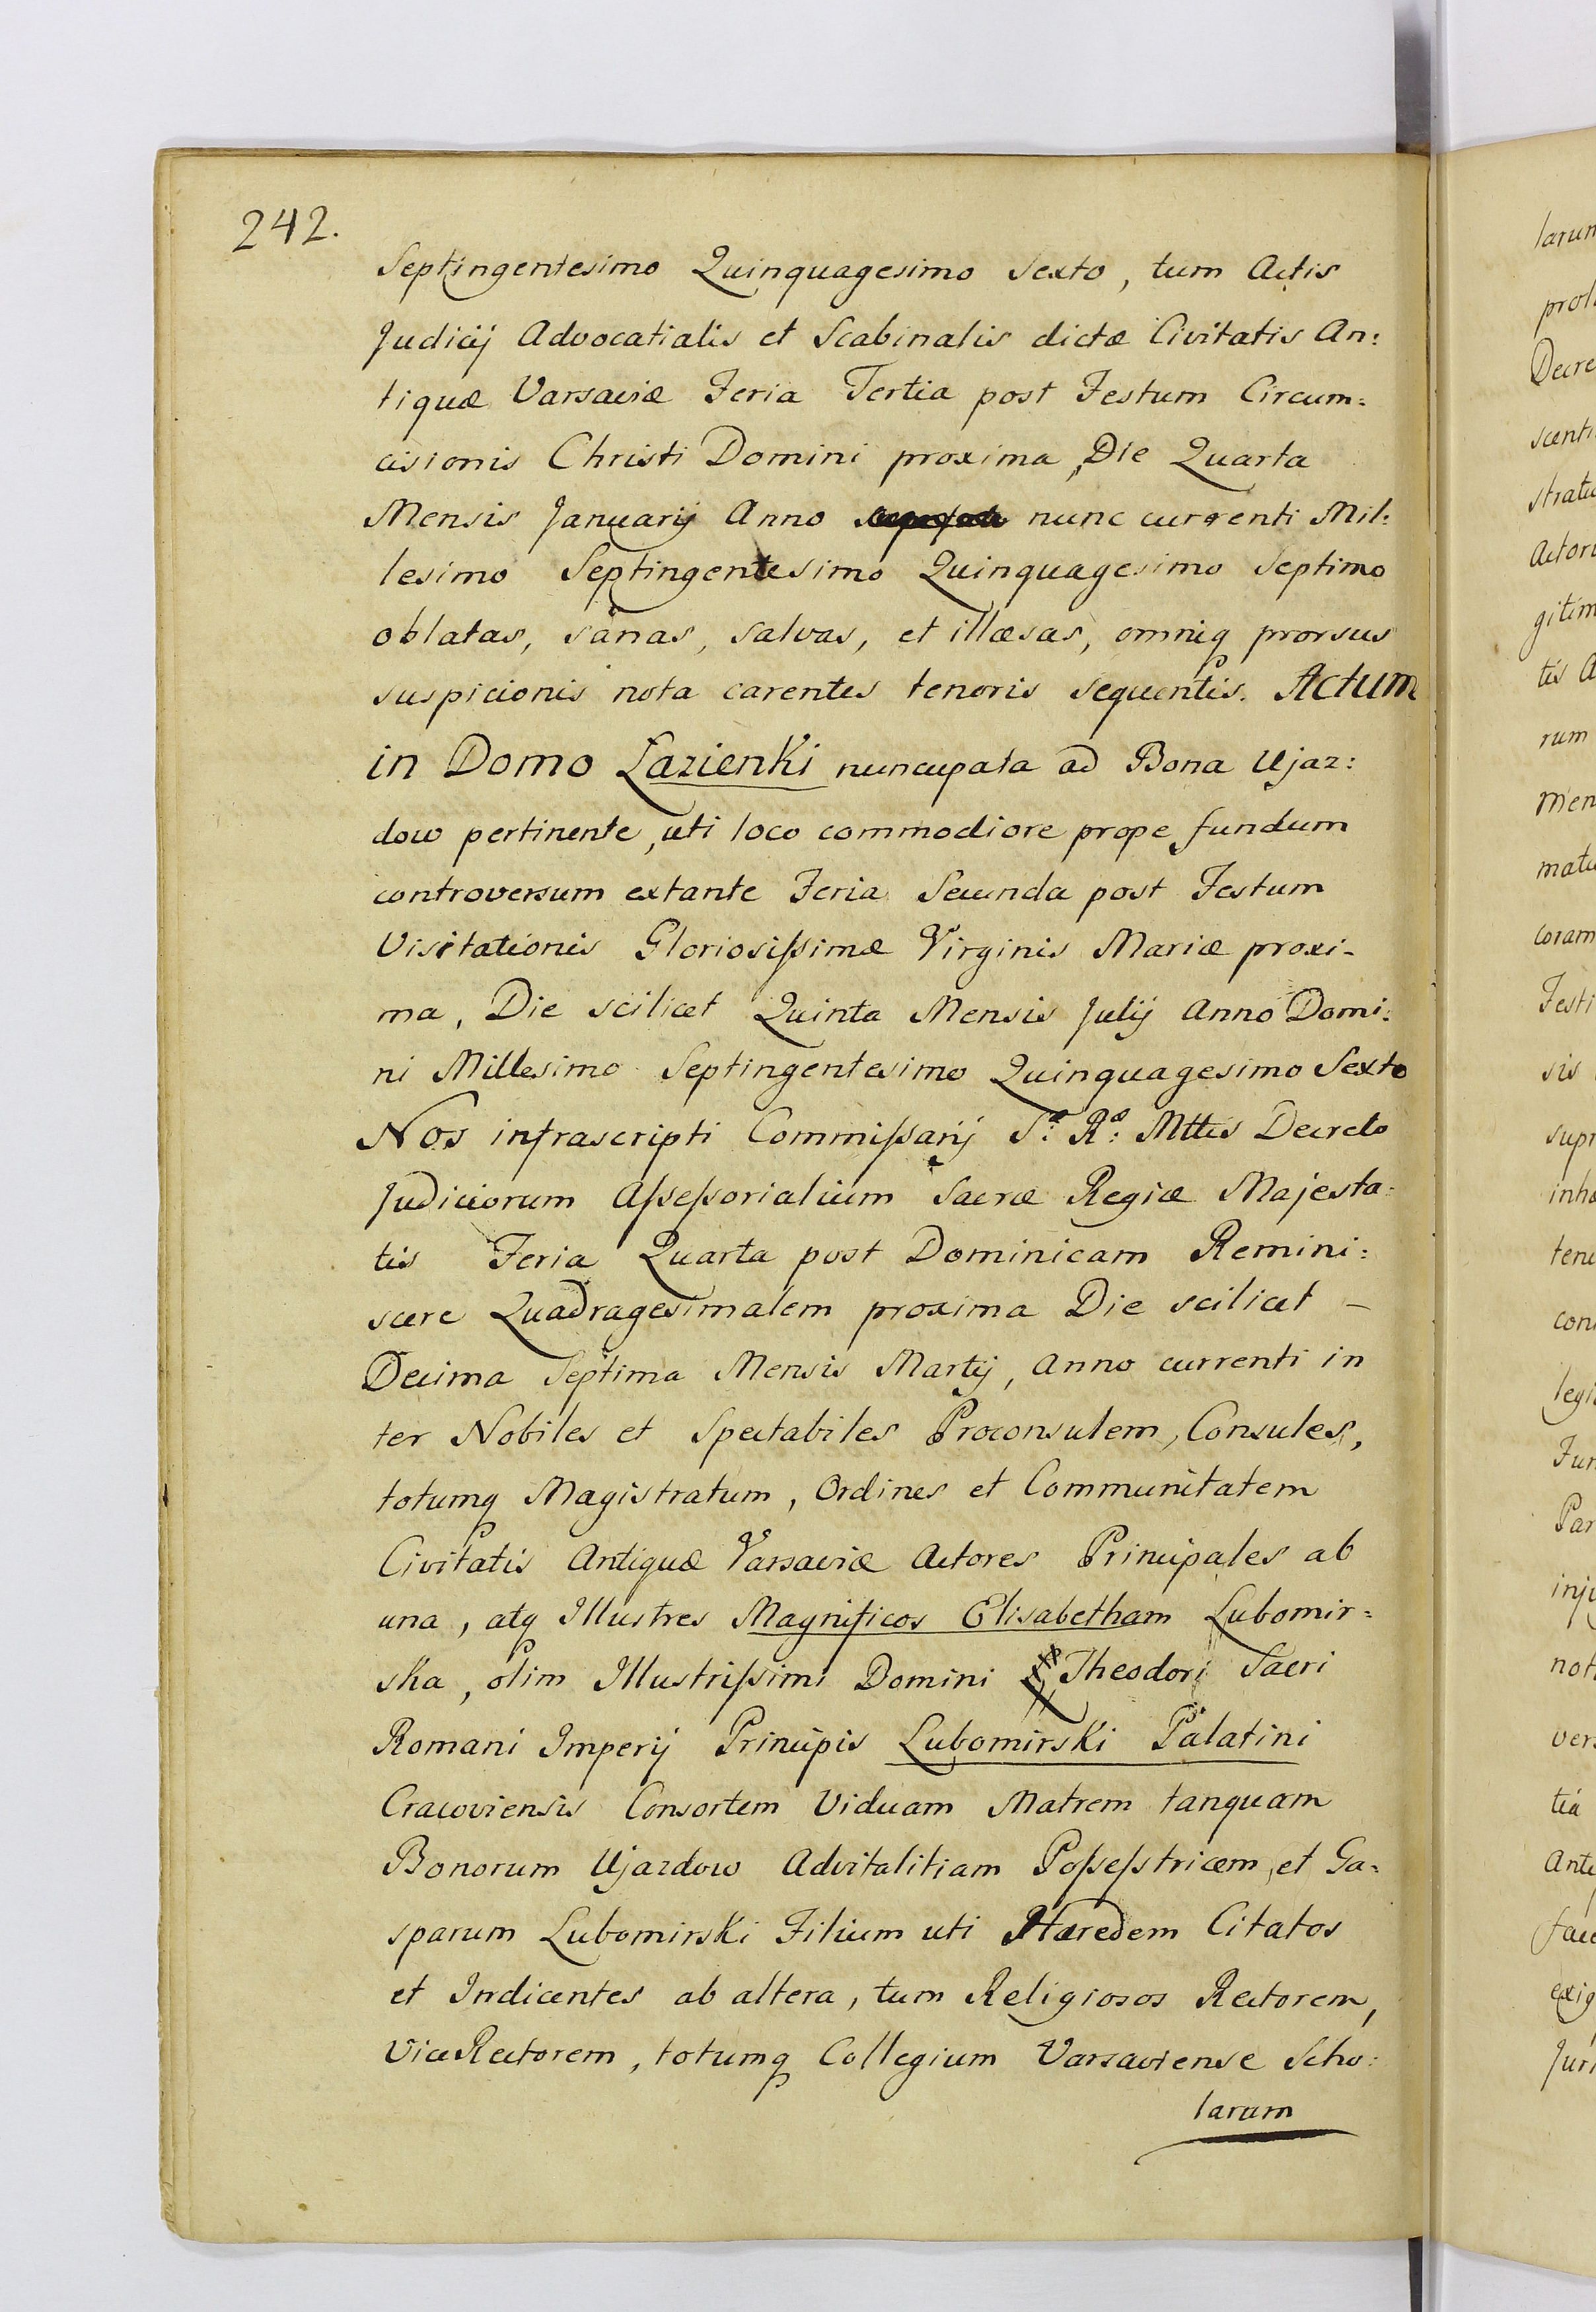 242.
Septingentesimo Quinquagesimo Sexto, tum Actis
Judicij Advocatialis et Scabinalis dictæ Civitatis An:
tiquæ Varsaviæ Feria Tertia post Festum Circum:
cisionis Christi Domini proxima, Die Quarta
Mensis Januarij Anno nunc currenti Mil:
lesimo Septingentesimo Quinquagesimo Septimo
oblatas, sanas, salvas, et illæsas, omniq prorsus
suspicionis nota carentes tenoris sequentis. Actum
in Domo Łazienki nuncupata ad Bona Ujaz:
dow pertinente, uti loco commodiore prope fundum
controversum extante Feria Secunda post Festum
Visitationis Gloriosißimæ Virginis Mariæ proxi-
ma, Die scilicet Quinta Mensis Julij Anno Domi:
ni Millesimo Septingentesimo Quinquagesimo Sexto
Nos infrascripti Commißarij S:æ R:æ Mttis Decreto
Judiciorum Aßeßorialium Sacræ Regiæ Majesta:
tis Feria Quarta post Dominicam Remini:
scere Quadragesimalem proxima Die scilicet –
Decima Septima Mensis Martij, Anno currenti in
ter Nobiles et Spectabiles Proconsulem, Consules,
totumq Magistratum, Ordines et Communitatem
Civitatis Antiquæ Varsaviæ Actores Principales ab
una, atq Illustres Magnificos Elisabetham Lubomir=
ska, olim Illustrißimi Domini Theodori Sacri
Romani Imperij Principis Lubomirski Palatini
Cracoviensis Consortem Viduam Matrem tanquam
Bonorum Ujazdow Advitalitiam Poßeßtricem, et Ga=
sparum Lubomirski Filium uti Hæredem Citatos
et Indicentes ab altera, tum Religiosos Rectorem,
ViceRectorem, totumq Collegium Varsaviense Scho:
larum
larum
Decre
Actor
gitim
tis A
rum
men
coram
Festi
sis
supr
tene
Par
inju
not
vers
tia
Ante
exig
Juri